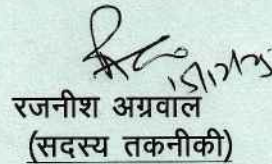 15/12/25
रजनीश अग्रवाल
(सदस्य तकनीकी)